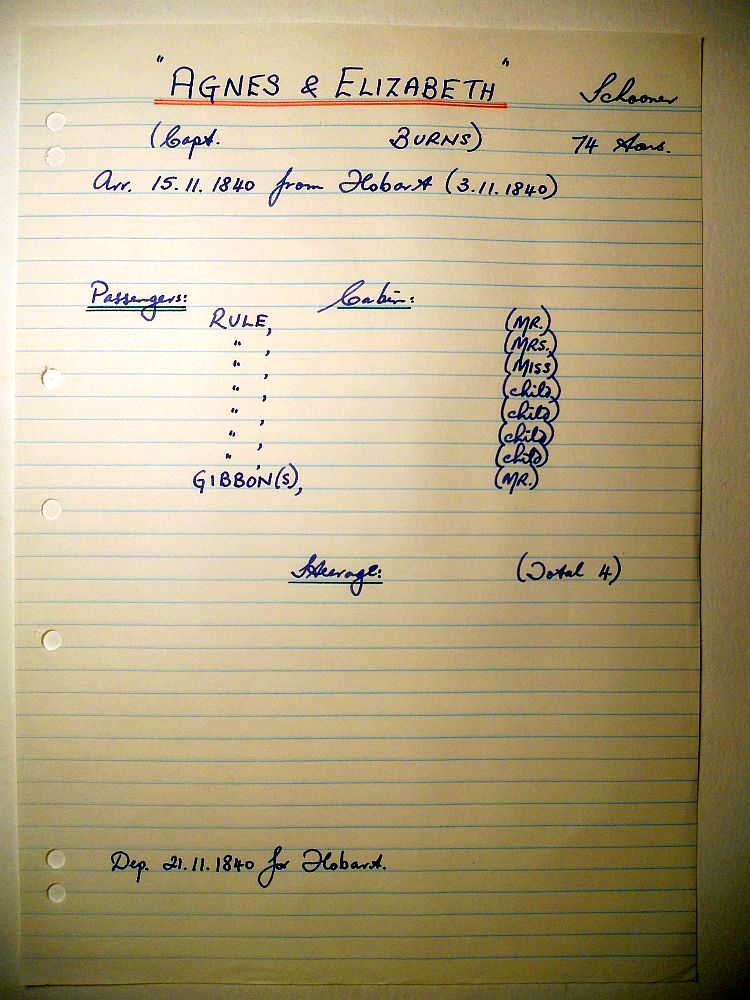 "AGNES & ELIZABETH" Schooner
(Capt. BURNS) 74 tons.
Arr. 15.11.1840 from Hobart (3.11.1840)
Passengers: Cabin:
RULE, (MR.)
" , (MRS.)
" , (MISS)
" , (child)
" , (child)
" , (child)
" , (child)
GIBBON(S), (MR.)
Steerage: (Total 4)
Dep. 21.11.1840 for Hobart.